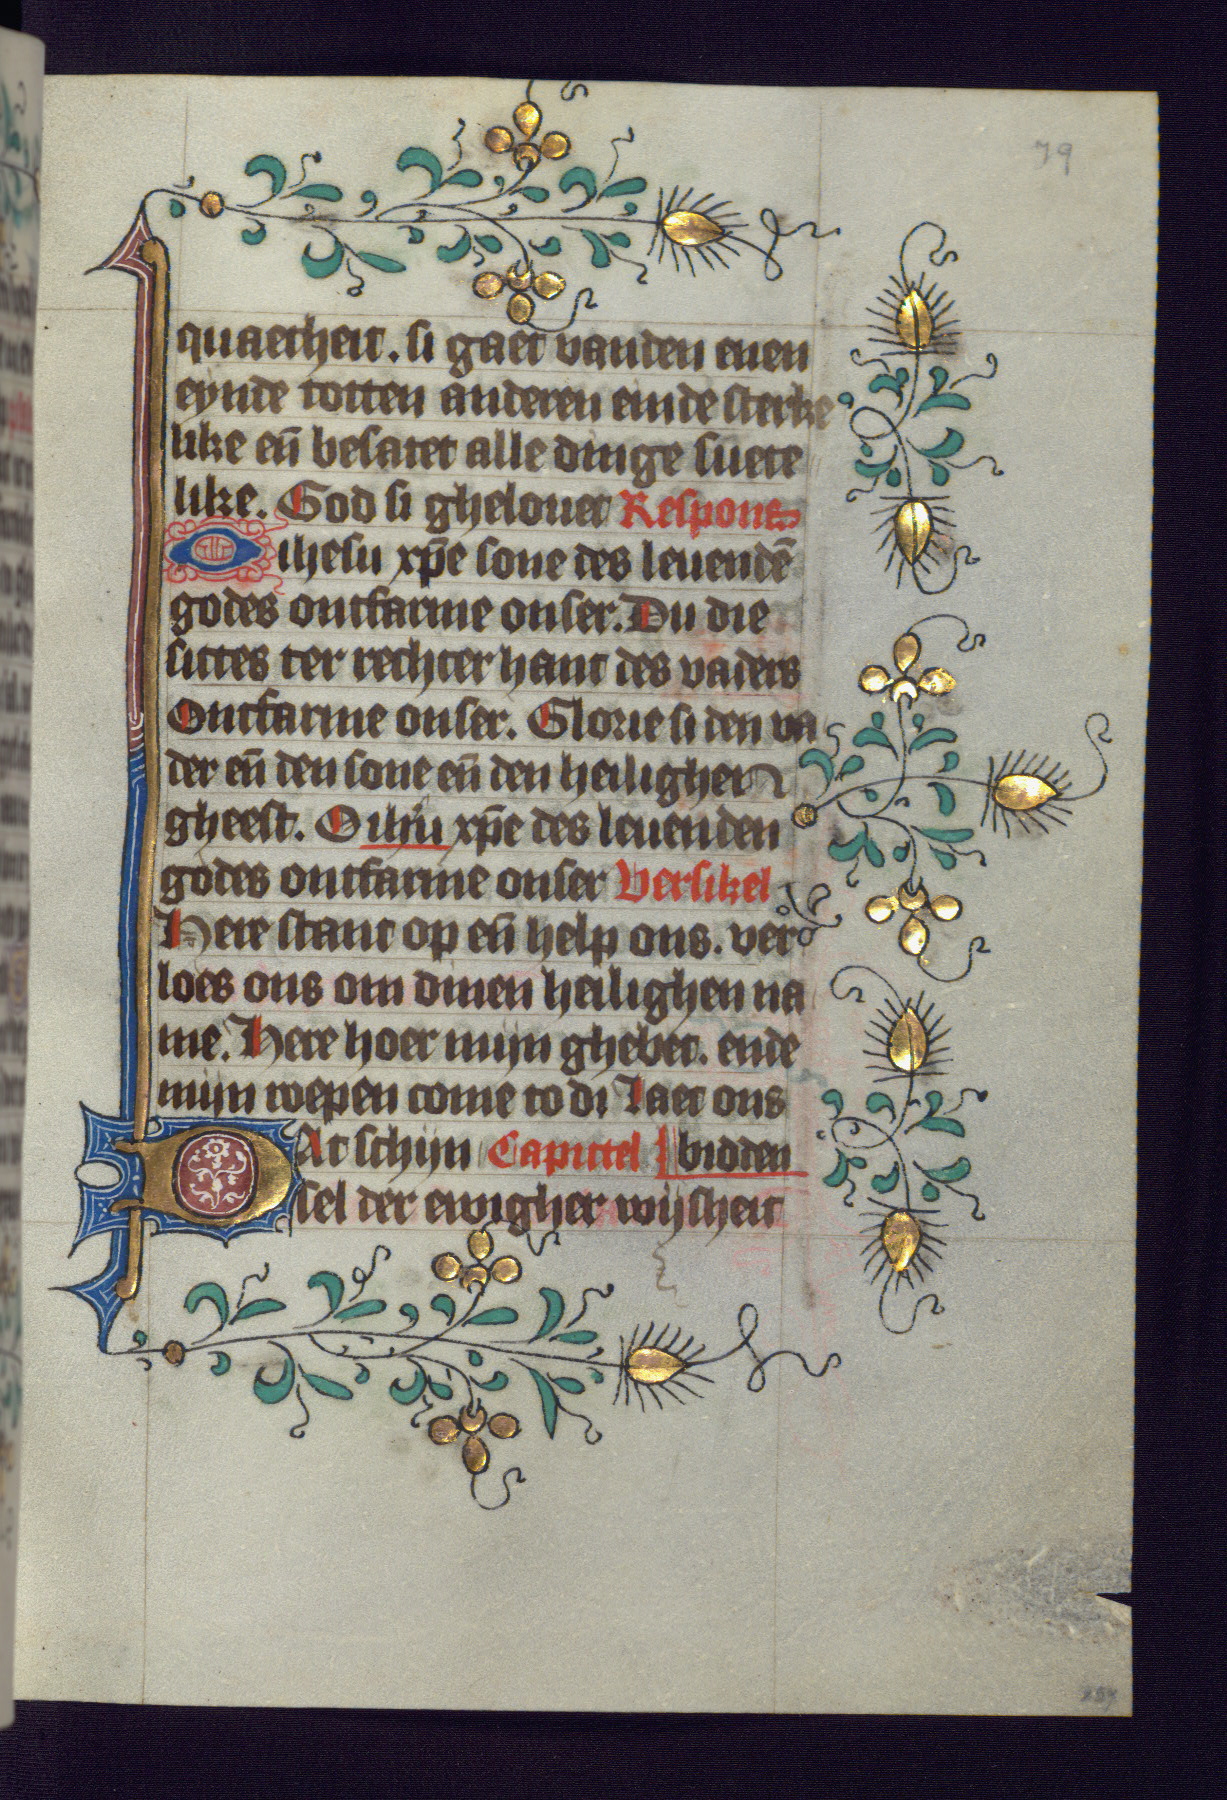 79
quaetheit. si gaet vanden enen
eynde totten anderen einde sterke
like en̄ besatet alle dinge suete
like. God si ghelouet Respons
O ihesu xp̄e sone des leuendē
godes ontfarme onser. Du die
sittes ter rechter hant des vaders
Ontfarme onser. Glorie si den va
der en̄ den sone en̄ den heilighen
gheest. O ihū xp̄e des leuenden
godes ontfarme onser Versikel
Here stant op en̄ help ons. ver
loes ons om dinen heilighen na
me. Here hoer mijn ghebet. ende
mijn roepen come to di Laet ons
Dat schijn Capittel bidden
sel der ewigher wijsheit